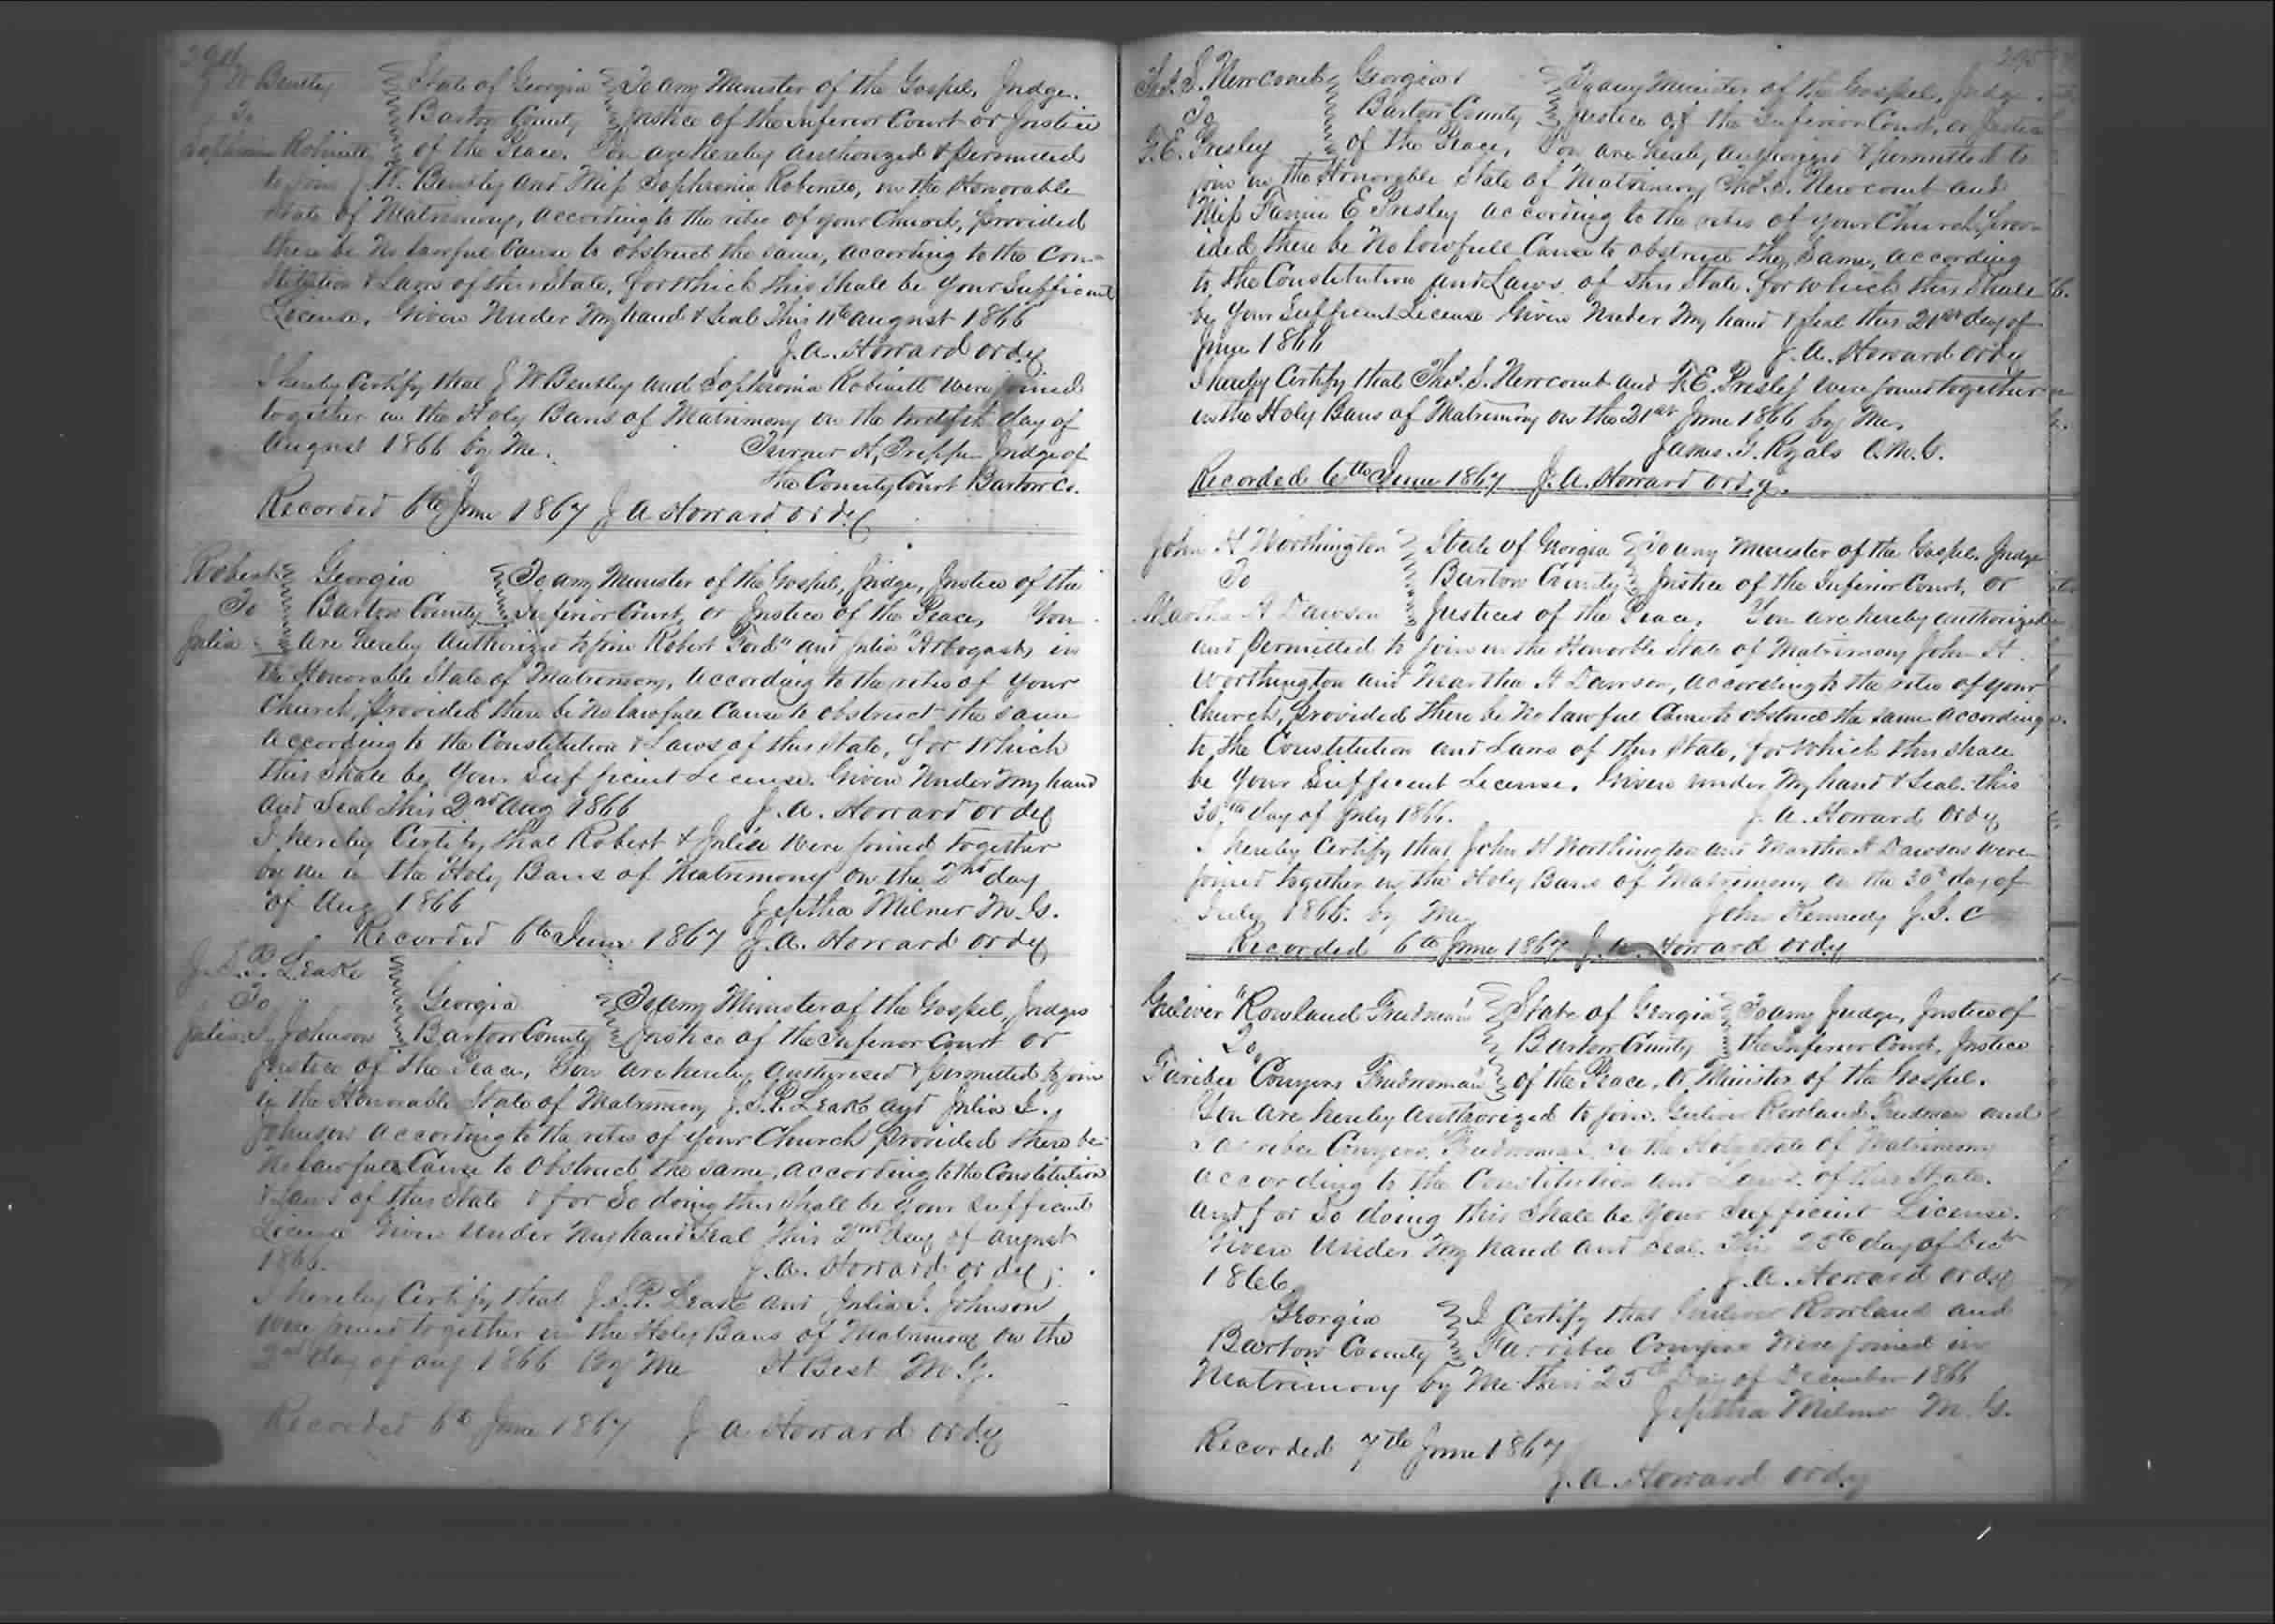 294
J W Bensley State of Georgia To any Minister of the Gospel, Judge,
To Bartow County Justice of the Inferior Court or Justice
Sophronia Robinett of the Peace. You are hereby authorized & permitted
to join J. W. Bensley and Miss Sophronia Robinett, in the Honorable
State of Matrimony, according to the rites of your Church, provided
there be no lawful Cause to obstruct the same, according to the Con-
stitution & Laws of this State, for which this shall be your Sufficient
License. Given Under My hand & Seal This 11th August 1866
J. A. Howard ordy
I hereby Certify that J W Bensley and Sophronia Robinett were joined
together in the Holy Bans of Matrimony on the twelfth day of
August 1866 by Me. Turner H. Trippe Judge of
the County Court Bartow Co.
Recorded 6th June 1867 J A Howard ordy
Robert Georgia To any Minister of the Gospel, Judge, Justice of the
To Bartow County Inferior Court, or Justice of the Peace, You
Julia are hereby authorized to join Robert "Ford" and Julia "Arbogast, in
the Honorable State of Matrimony, according to the rites of your
Church, provided there be no lawfull Cause to obstruct the same
according to the Constitution & Laws of this State, for which
this shall be Your Sufficient License. Given Under My hand
and Seal This 2nd Aug 1866 J. A. Howard ordy
I hereby Certify that Robert & Julia were joined together
by me in the Holy Bans of Matrimony on the 2nd day
of Aug 1866 Jeptha Milner M.G.
Recorded 6th June 1867 J. A. Howard ordy
J. S. P. Leake
To Georgia To any Minister of the Gospel, Judges
Julia I. Johnson Bartow County Justice of the Inferior Court or
Justice of the Peace, You are hereby authorised & permitted to join
in the Honorable State of Matrimony J. S. P. Leake and Julia I.
Johnson according to the rites of your Church provided there be
no lawfull Cause to obstruct the same, according to the Constitution
& Laws of this State & for So doing this shall be your sufficient
License Given Under My hand Seal This 2nd day of August
1866. J. A. Howard ordy
I hereby Certify that J. S. P. Leake and Julia I. Johnson
were joined together in the Holy Bans of Matrimony on the
2nd day of Aug 1866 By Me H Best M.G.
Recorded 6th June 1867 J A Howard ordy
295
Thos. S. Newcomb Georgia To any Minister of the Gospel, Judge
To Bartow County Justice of the Inferior Court, or Justice
F. E. Presley of the Peace, You are hereby authorized & permitted to
join in the Honorable State of Matrimony Thos. S. Newcomb and
Miss Fannie E Presley according to the rites of your Church, prov-
ided there be no lawfull Cause to obstruct the Same, according
to the Constitution and Laws of this State. for which this shall
be Your Sufficient License Given Under My hand & Seal this 21st day of
June 1866 J. A. Howard ordy
I hereby Certify that Thos. S. Newcomb and F. E. Presley were joined together
in the Holy Bans of Matrimony on the 21st June 1866 by Me,
James. G. Ryals O.M.G.
Recorded 6th June 1867 J. A. Howard ordy.
John H Worthington State of Georgia To any Minister of the Gospel, Judge
To Bartow County Justice of the Inferior Court, or
Martha A Dawson Justices of the Peace, You are hereby authorized
and permitted to join in the Honorble State of Matrimony John H
Worthington and Martha A Dawson, according to the rites of your
Church, provided there be no lawful Cause to obstruct the same according
to the Constitution and Laws of this State, for which this shall
be Your Sufficient License. Given under My hand & Seal this
30th day of July 1866. J. A. Howard Ordy
I hereby Certify that John H Worthington and Martha A Dawson were
joined together in the Holy Bans of Matrimony on the 30th day of
July 1866. by Me, John Kennedy J.I.C
Recorded 6th June 1867 J. A. Howard ordy
Guliver "Rowland Freedman" State of Georgia To any Judge, Justice of
To Bartow County the Inferior Court, Justice
Fariebee Conyers Freedwoman" of the Peace, or Minister of the Gospel.
You are hereby authorized to join Guliver Rowland Freedman and
Fariebee Conyers Freedwoman, in the Holy state of Matrimony
according to the Constitution and Laws of this State.
and for So doing this Shall be Your Sufficient License.
Given Under My hand and Seal. This 25th day of Decr
1866 J. A. Howard ordy
Georgia I Certify that Guliver Rowland and
Bartow County Fariebee Conyers Were joined in
Matrimony by Me this 25th Day of December 1866
Jeptha Milner M.G.
Recorded 7th June 1867
J. A. Howard ordy